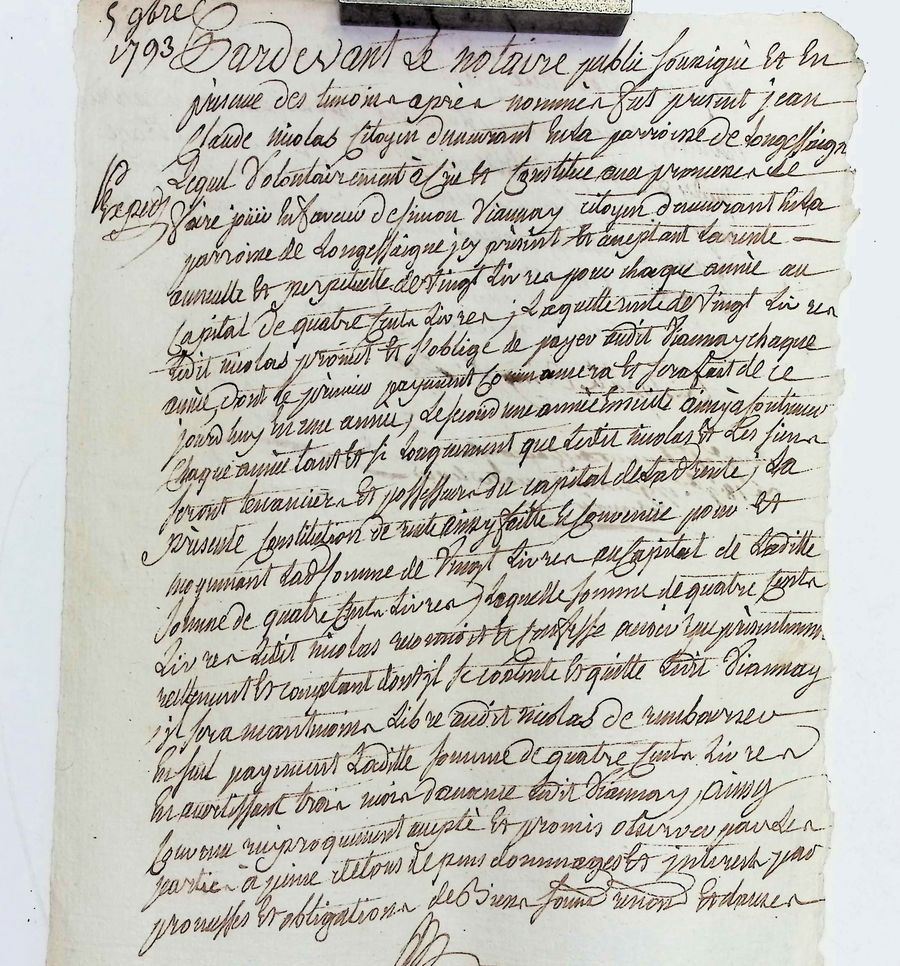 5 9bre
1793
Pardevant Le notaire public soussigné Et En
presence des temoins après nommés fut present jean
Claude nicolas Citoyen demeurant En La parroisse de Longessaigne
Expedié
Lequel Volontairement a Crée et Constitué avec promesse de
faire jouir En faveur de Simon Viannay citoyen demeurant En La
parroisse de Longessaigne icy present Et acceptant La rente
annuelle Et perpetuelle de Vingt Livres pour chaque année au
Capital de quatre Cents Livres, Laquelle rente de Vingt Livres
Ledit nicolas promet Et s'oblige de payer audit Viannay chaque
année, dont le premier payement Commancera Et sera fait de ce
jourdhuy En une année, Le second une année Ensuite ainsy a Continuer
Chaque année tant Et si Longuement que Ledit nicolas Et Les siens
seront tenanciers Et possesseurs du capital de Lad rente, La
presente Constitution de rente ainsy faitte Et Convenue pour Et
moyennant Lad somme de Vingt Livres au Capital de Laditte
somme de quatre Cents Livres, Laquelle somme de quatre Cents
Livres Ledit nicolas reconnoit et Confesse avoir reçu présentement
reellement Et comptant dont il se contente Et quitte Ledit Viannay
il sera neantmoins Libre audit nicolas de rembourser
En seul payement Laditte somme de quatre Cents Livres
En avertissant trois mois d'avance Ledit Viannay, ainsy
Convenu reciproquement accepté Et promis observer par Les
parties à peine de tous depens dommages Et interest par
promesses Et obligations de Biens soum renond Et clauses